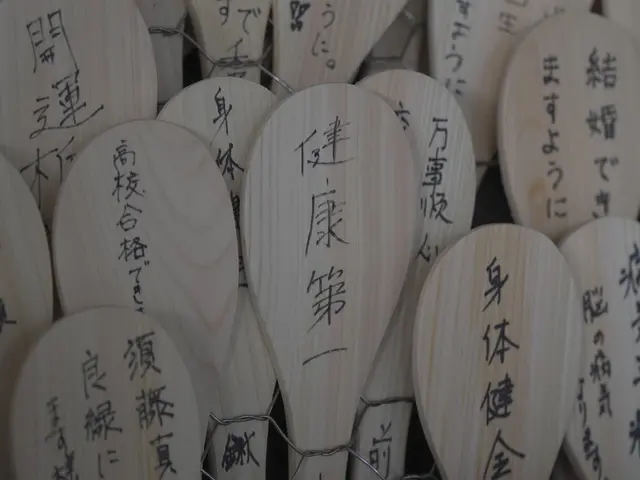 開運祈
高校合格でき
身体
健康第一
万事順
結婚でき
ますように
身体健全
脳の病気
須藤真
良縁に
ます様
うに。
ように
前